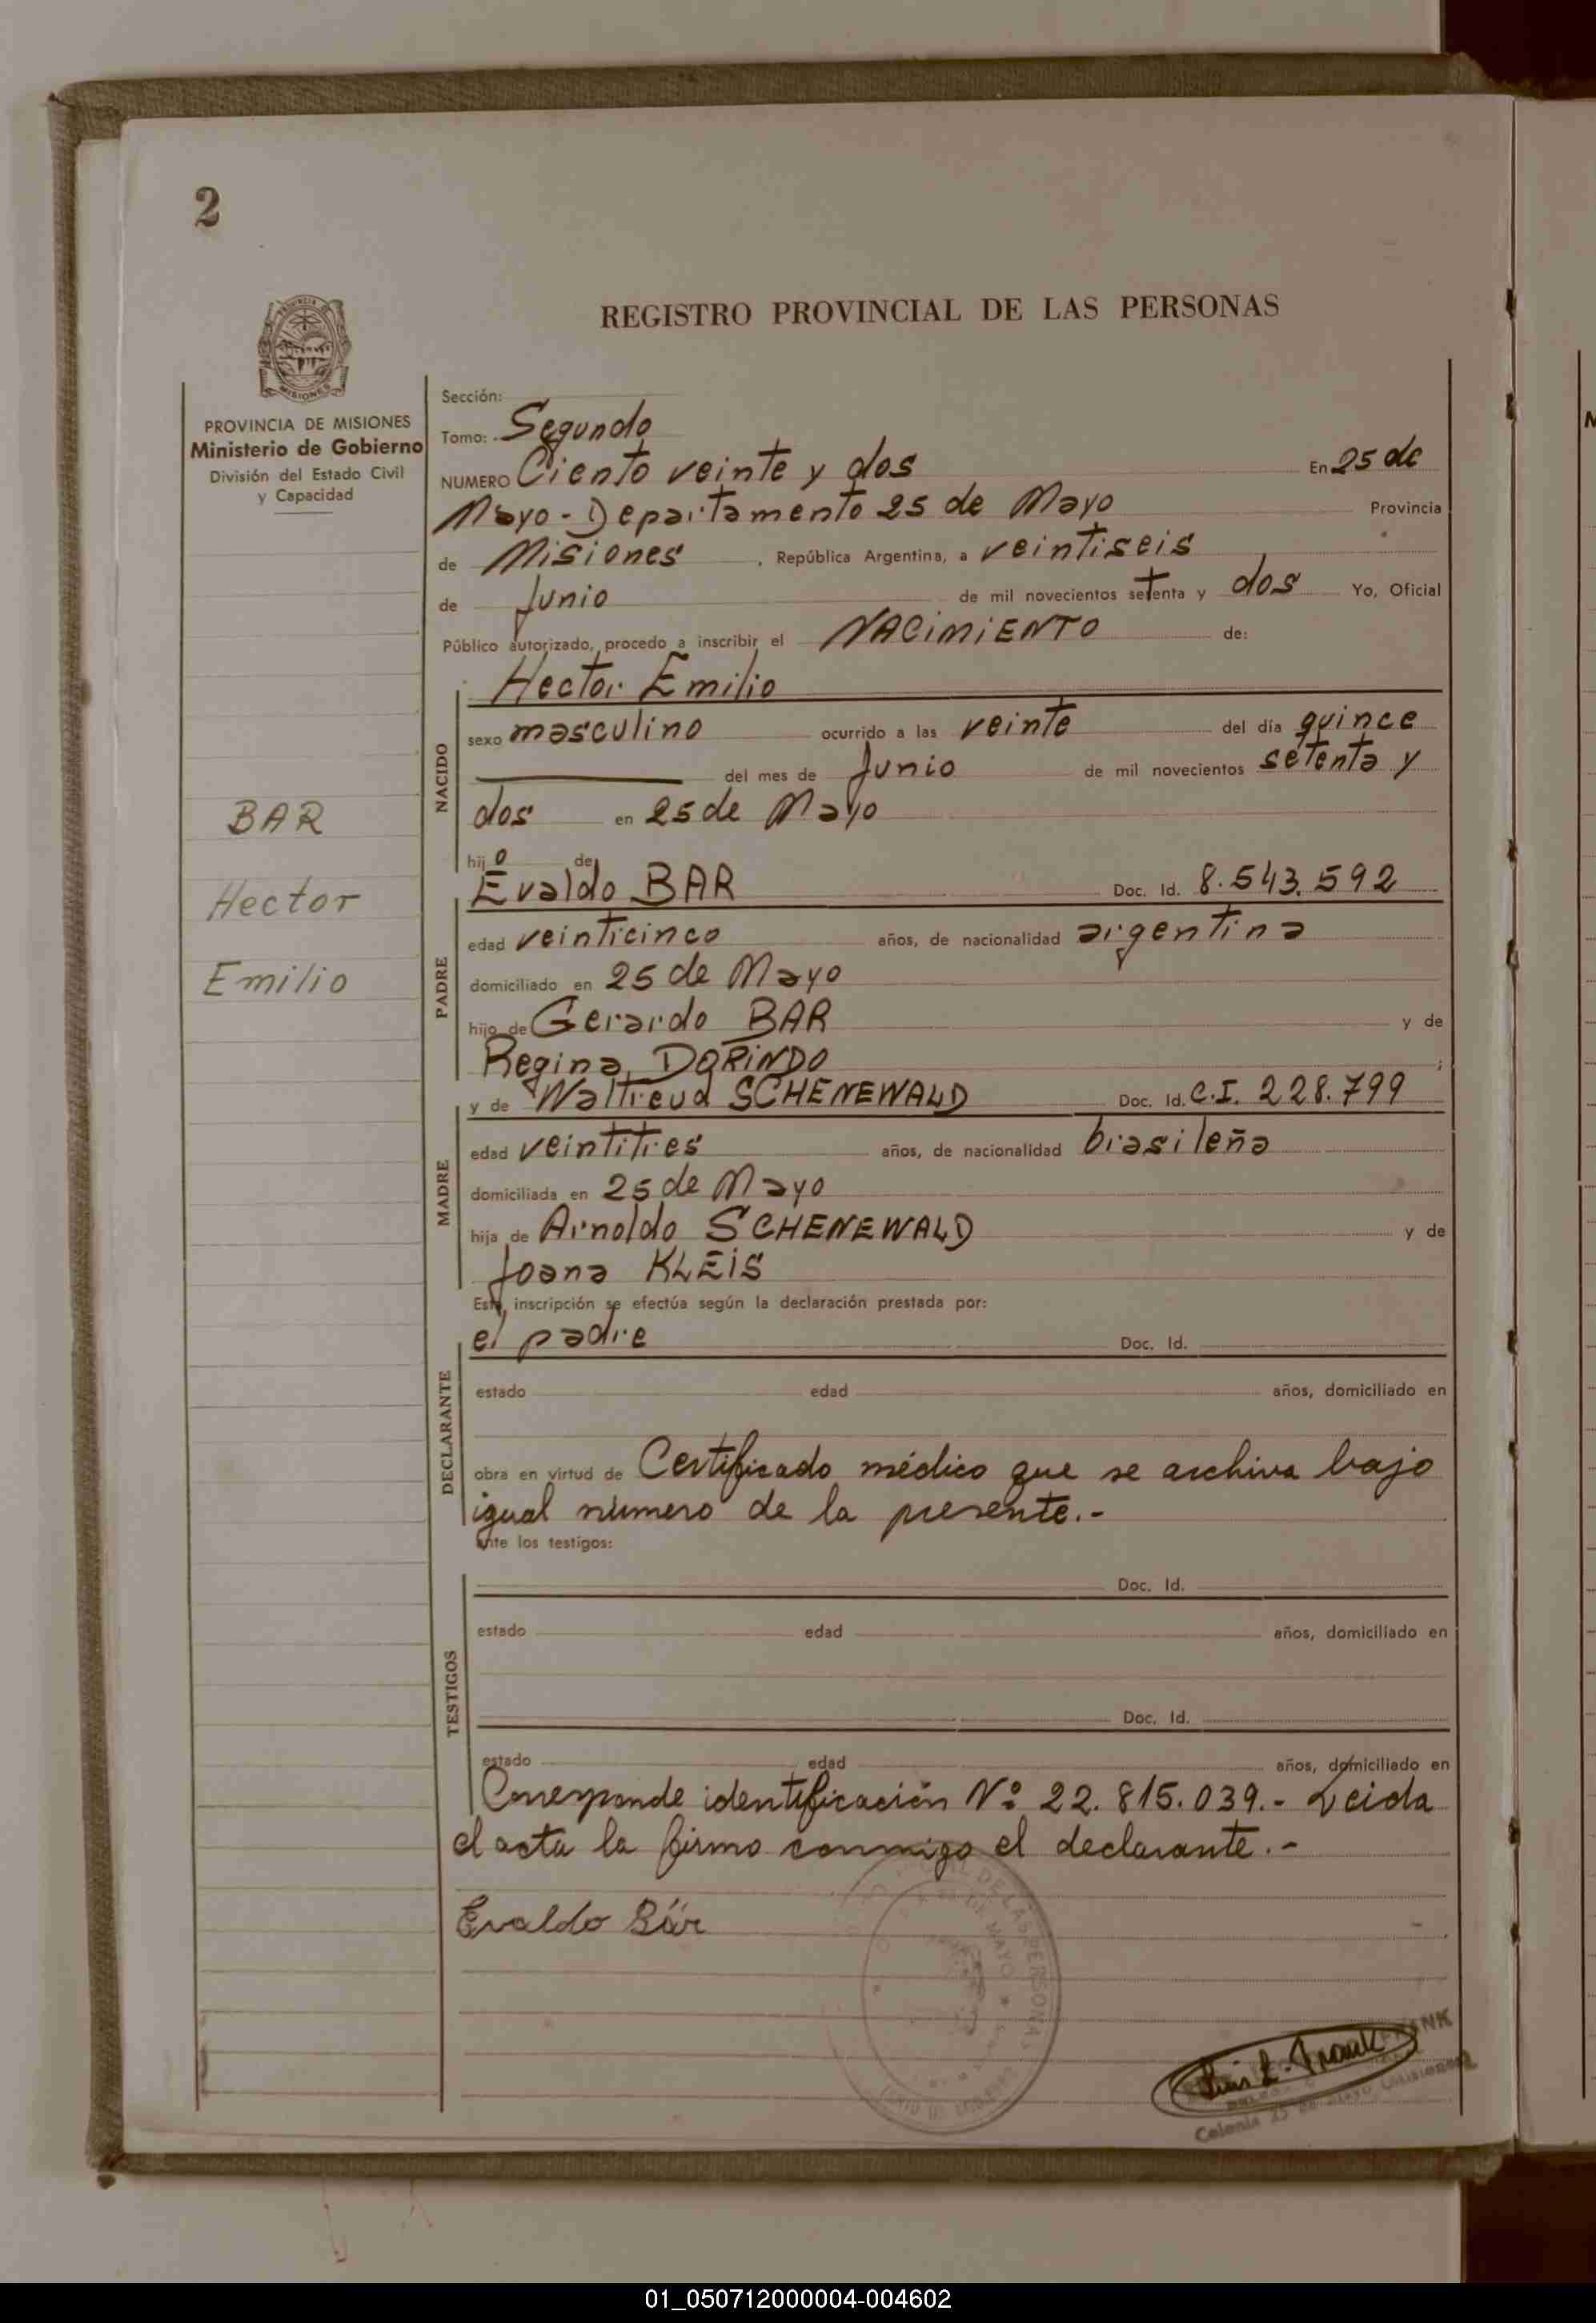 2
REGISTRO PROVINCIAL DE LAS PERSONAS
PROVINCIA DE MISIONES
Ministerio de Gobierno
División del Estado Civil
y Capacidad
BAR
Hector
Emilio
Sección:
Tomo: Segundo
NUMERO Ciento veinte y dos En 25 de
Mayo - Departamento 25 de Mayo Provincia
de Misiones, República Argentina, a veintiseis
de Junio de mil novecientos setenta y dos Yo, Oficial
Público autorizado, procedo a inscribir el NACIMIENTO de:
Hector Emilio
NACIDO
sexo masculino ocurrido a las veinte del día quince
del mes de Junio de mil novecientos setenta y
dos en 25 de Mayo
hijo de
Evaldo BAR Doc. Id. 8.543.592
PADRE
edad veinticinco años, de nacionalidad argentina
domiciliado en 25 de Mayo
hijo de Gerardo BAR y de
Regina DORINDO ;
y de Waltreud SCHENEWALD Doc. Id. C.I. 228.799
MADRE
edad veintitres años, de nacionalidad brasileña
domiciliada en 25 de Mayo
hija de Arnoldo SCHENEWALD y de
Joana KLEIS
Esta inscripción se efectúa según la declaración prestada por:
el padre Doc. Id.
DECLARANTE
estado edad años, domiciliado en
obra en virtud de Certificado médico que se archiva bajo
igual número de la presente.-
ante los testigos:
Doc. Id.
TESTIGOS
estado edad años, domiciliado en
Doc. Id.
estado edad años, domiciliado en
Corresponde identificación Nº 22.815.039.- Leida
el acta la firma conmigo el declarante.-
Evaldo Bär
DE LAS PERSONAS
DE MAYO
Luis L. Frank
FRANK
Colonia 25 de Mayo (Misiones)
01_050712000004-004602